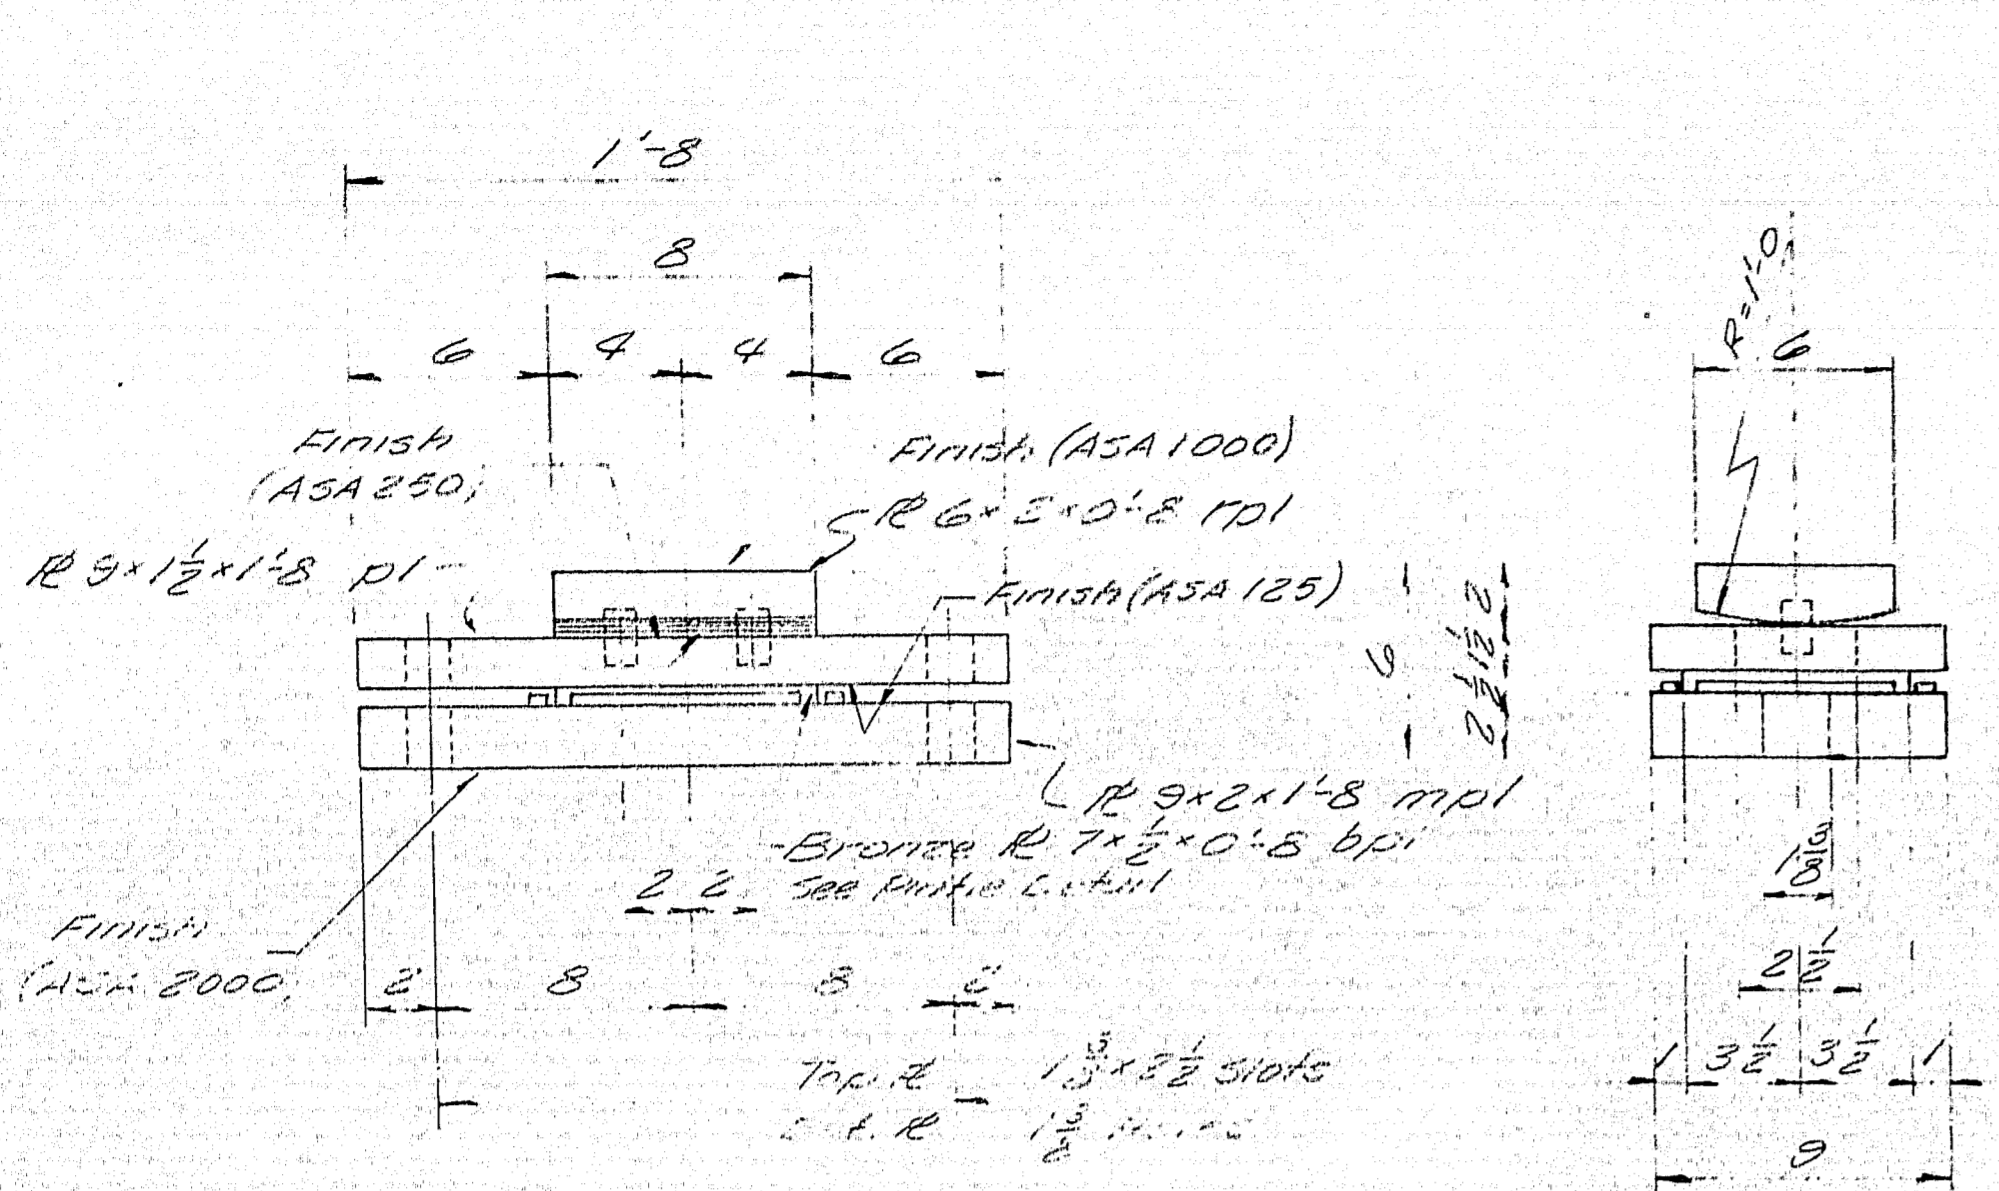 1'-8
8
6 4 4 6
R=1'-0
6
Finish
(ASA 250)
Finish (ASA 1000)
℄ 6 × 2 × 0'-8 rpl
℄ 9 × 1 1/2 × 1'-8 pl
Finish (ASA 125)
6
2 1/2 1 1/2 2
℄ 9 × 2 × 1'-8 mpl
Bronze ℄ 7 × 1/2 × 0'-8 bpl
See
2 2
1 3/8
Finish
(ASA 2000)
2 8 8 2
2 1/2
Top ℄ 1 3/8 × 2 1/2 Slots
℄ 1 3/8
1 3 1/2 3 1/2 1
9